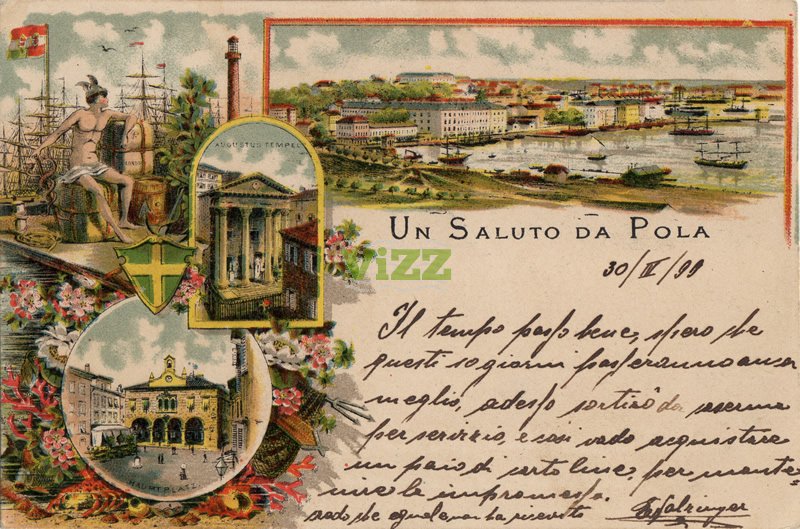 AUGUSTUS TEMPEL
UN SALUTO DA POLA
vizz
30/III/99
Il tempo passo bene, spero che
questi 10 giorni passeranno ancora
meglio, adesso sortirò da caserma
per servizio, e così vado acquistare
un paio di cartoline, per mante-
nere la impromessa.
HAUPTPLATZ